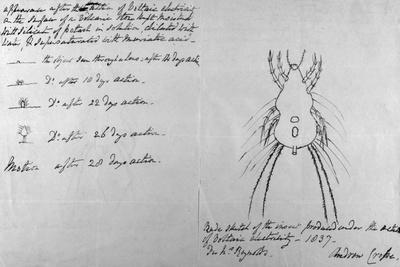 appearance after the action of Voltaic electricity
on the surface of a volcanic stone kept moistened
with silicate of potash in solution diluted with
water & supersaturated with muriatic acid —
the object seen through a lens, after 14 days act
Do after 18 days action —
Do after 22 days action.
Do after 26 days action.
Motion after 28 days action.
Rude sketch of the insect produced under the action
of Voltaic electricity — 1837.
Andrew Crosse.